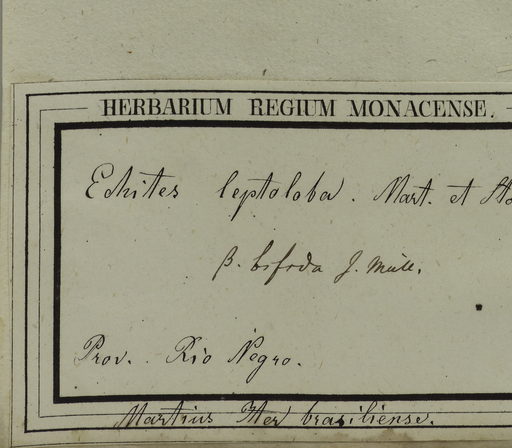 HERBARIUM REGIUM MONACENSE.
Echites leptoloba. Mart. et
β. bifida J. Müll.
Prov. Rio Negro.
Martius Iter brasiliense.